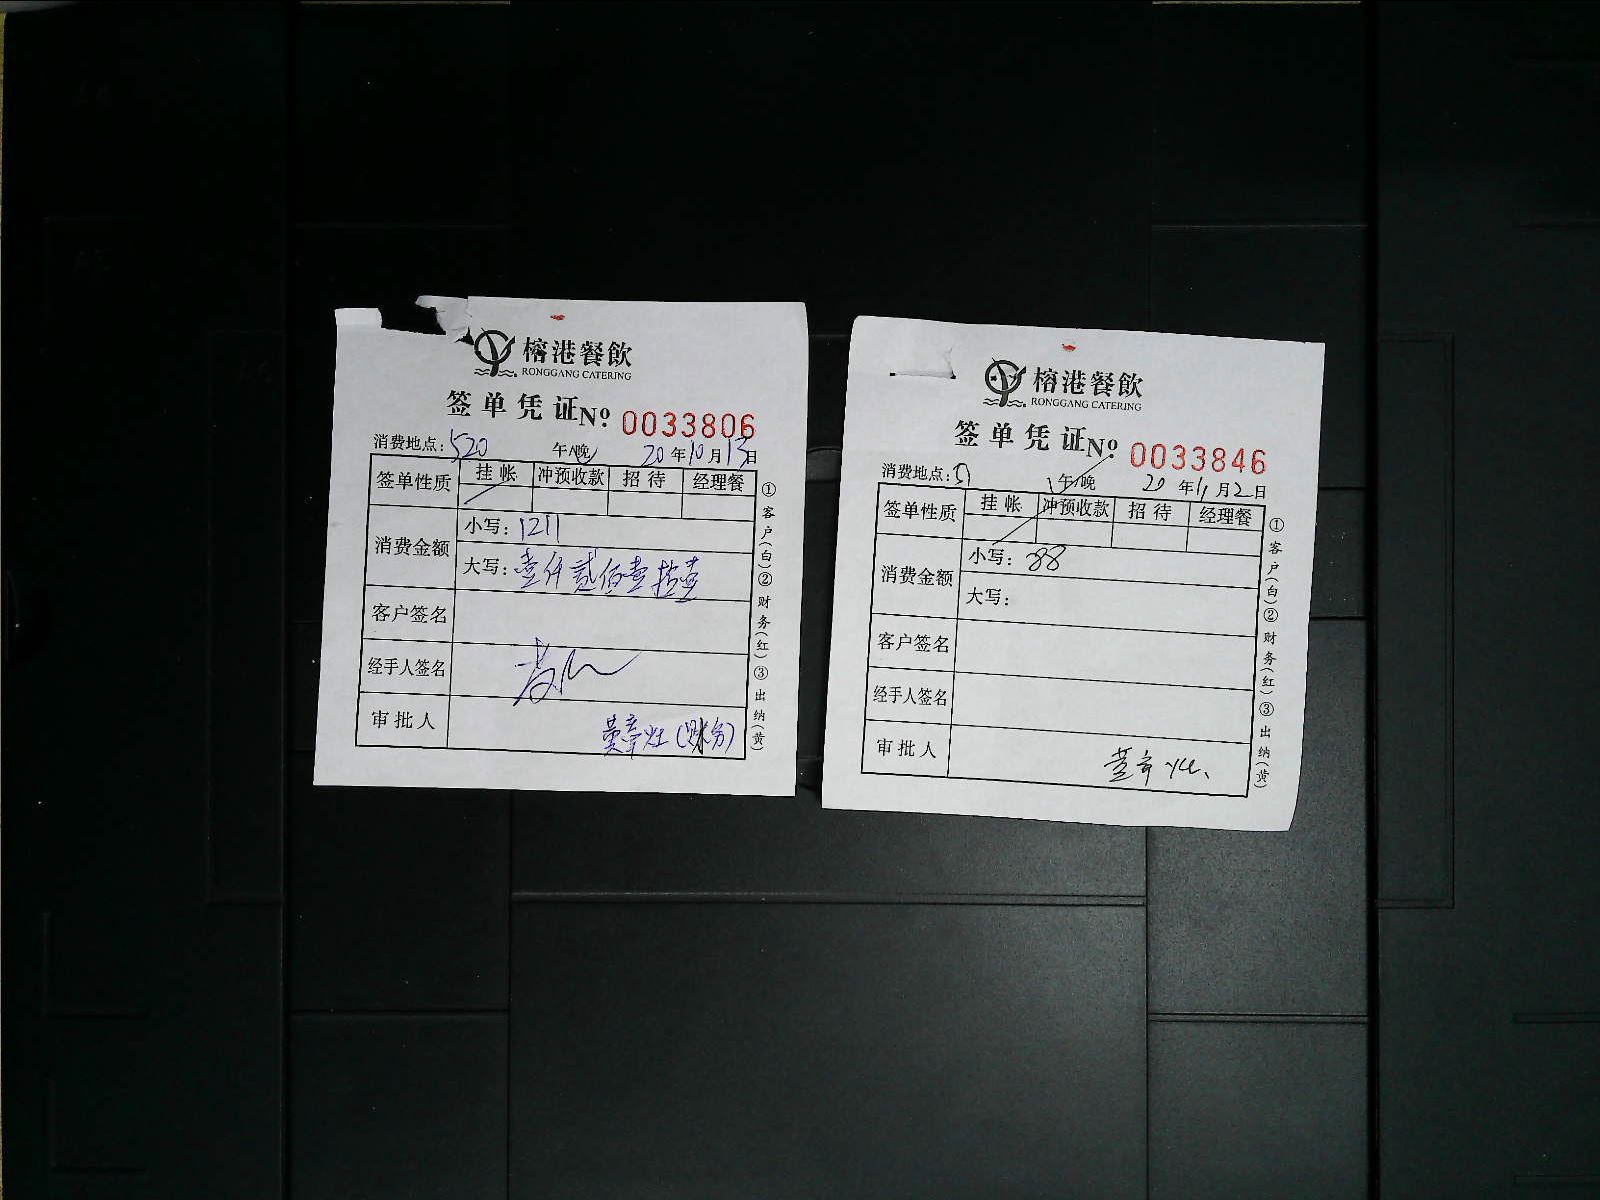 榕港餐飲
RONGGANG CATERING
签单凭证 No 0033806
消费地点：520 午/晚 20年10月13日
签单性质 挂帐 冲预收款 招待 经理餐
消费金额 小写：1211
大写：壹仟贰佰壹拾壹
客户签名
经手人签名
审批人 黄章灶（财务）
①客户（白）②财务（红）③出纳（黄）
榕港餐飲
RONGGANG CATERING
签单凭证 No 0033846
消费地点： 午/晚 20年11月2日
签单性质 挂帐 冲预收款 招待 经理餐
消费金额 小写：388
大写：
客户签名
经手人签名
审批人 黄章灶
①客户（白）②财务（红）③出纳（黄）